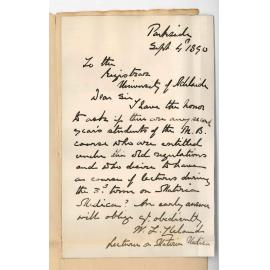 Parkside
Sept 4th 1890
To the
Registrar
University of Adelaide
Dear Sir
I have the honor
to ask if there are any second
years students of the M.B.
course who are entitled
under the old regulations
and who desire to have
a course of lectures during
the 3rd term on Materia
Medica? An early answer
will oblige yr. obediently
W. L.
Lecturer on Materia Medica